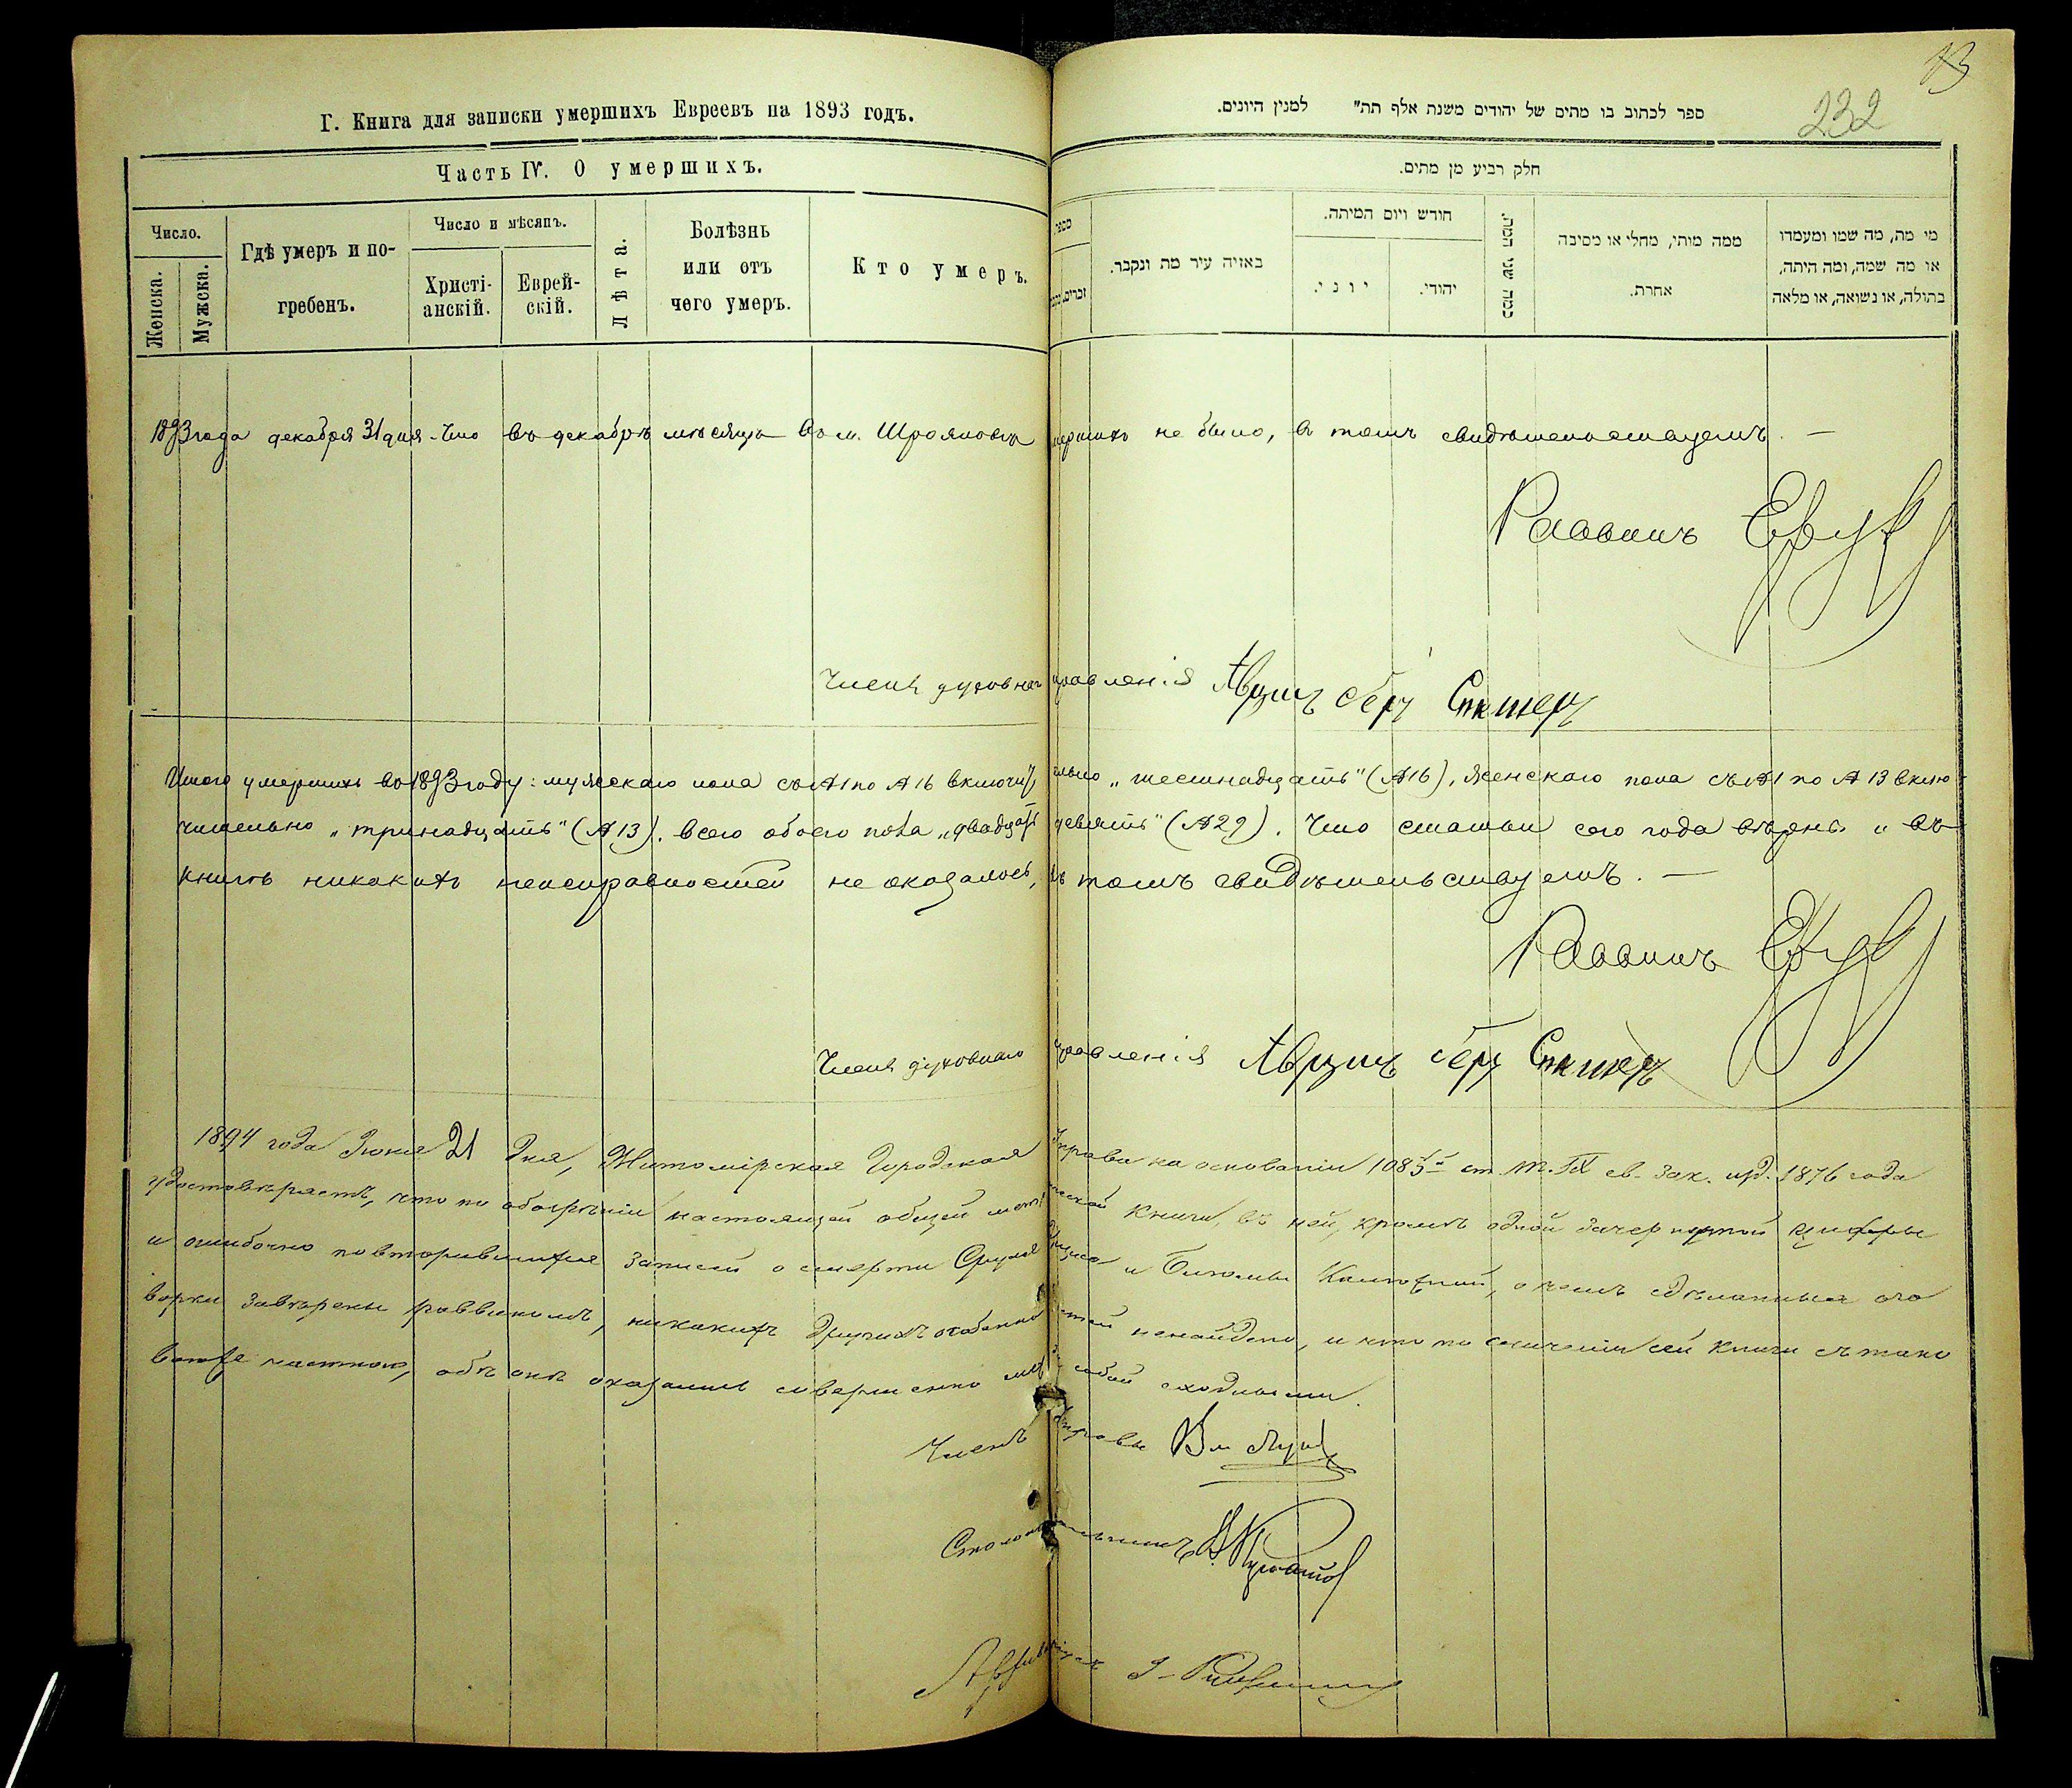 13
232
Г. Книга для записки умершихъ Евреевъ на 1893 годъ.
ספר לכתוב בו מתים של יהודים משנת אלף תת״ למנין היונים.
Часть IV. О умершихъ.
חלק רביע מן מתים.
Число.
Женска.
Мужска.
Гдѣ умеръ и по-
гребенъ.
Число и мѣсяцъ.
Христі-
анскій.
Еврей-
скій.
Лѣта.
Болѣзнь
или отъ
чего умеръ.
Кто умеръ.
מספר
באזיה עיר מת ונקבר.
חודש ויום המיתה.
יוני.
יהודי.
כמה שני המת.
ממה מותי, מחלי או מסיבה
אחרת.
מי מת, מה שמו ומעמדו
או מה שמה, ומה היתה,
בתולה, או נשואה, או מלאה
1893 года декабря 31 дня. Что въ декабрѣ мѣсяцѣ въ м. умершихъ не было, в томъ свидѣтельствуемъ. —
Раввинъ
Членъ духовнаго правленія
Итого умершихъ въ 1893 году: мужскаго пола съ №1 по №16 включительно „шестнадцать" (№16), женскаго пола съ №1 по №13 вклю-
чительно „тринадцать" (№13). всего обоего пола „двадцать девять" (№29). Что статьи сего года вѣрны и въ
книгѣ никакихъ неисправностей не оказалось, въ томъ свидѣтельствуемъ. —
Раввинъ
Членъ духовнаго правленія
1894 года Іюня 21 дня, Житомірская Городская Управа на основаніи 1085 ст. т. IX св. зак. изд. 1876 года
удостовѣряетъ, что по обозрѣніи настоящей общей метрической книги, въ ней, кромѣ одной зачеркнутой цифры
и ошибочно повторившихся записей о смерти и о чемъ сдѣланныя ого
ворки завѣрены раввиномъ, никакихъ другихъ особенностей ненайдено, и что по сличеніи сей книги съ тако
вою же частною, обѣ онѣ оказались совершенно между собой сходными.
Членъ Управы
Столоначальникъ
Архиваріусъ